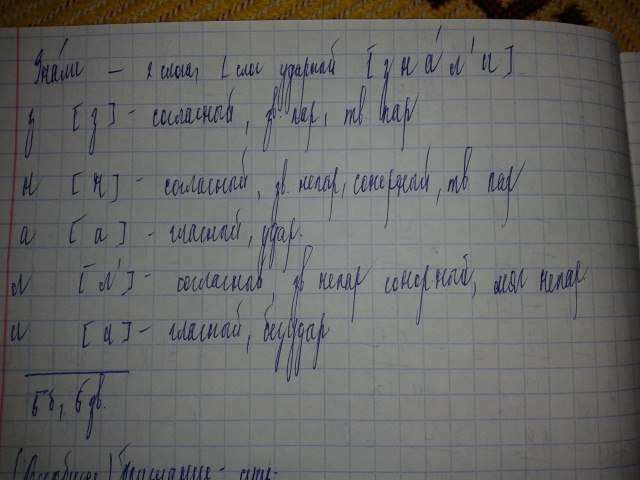 Зна́ли – 2 слога, 1 слог ударный [з н а́ л' и]
з [з] - согласный, зв. пар, тв пар
н [н] - согласный, зв. непар, сонорный, тв пар
а [а] - гласный, удар.
л [л'] - согласный, зв непар сонорный, мяг непар
и [и] - гласный, безудар
5 б, 5 зв.